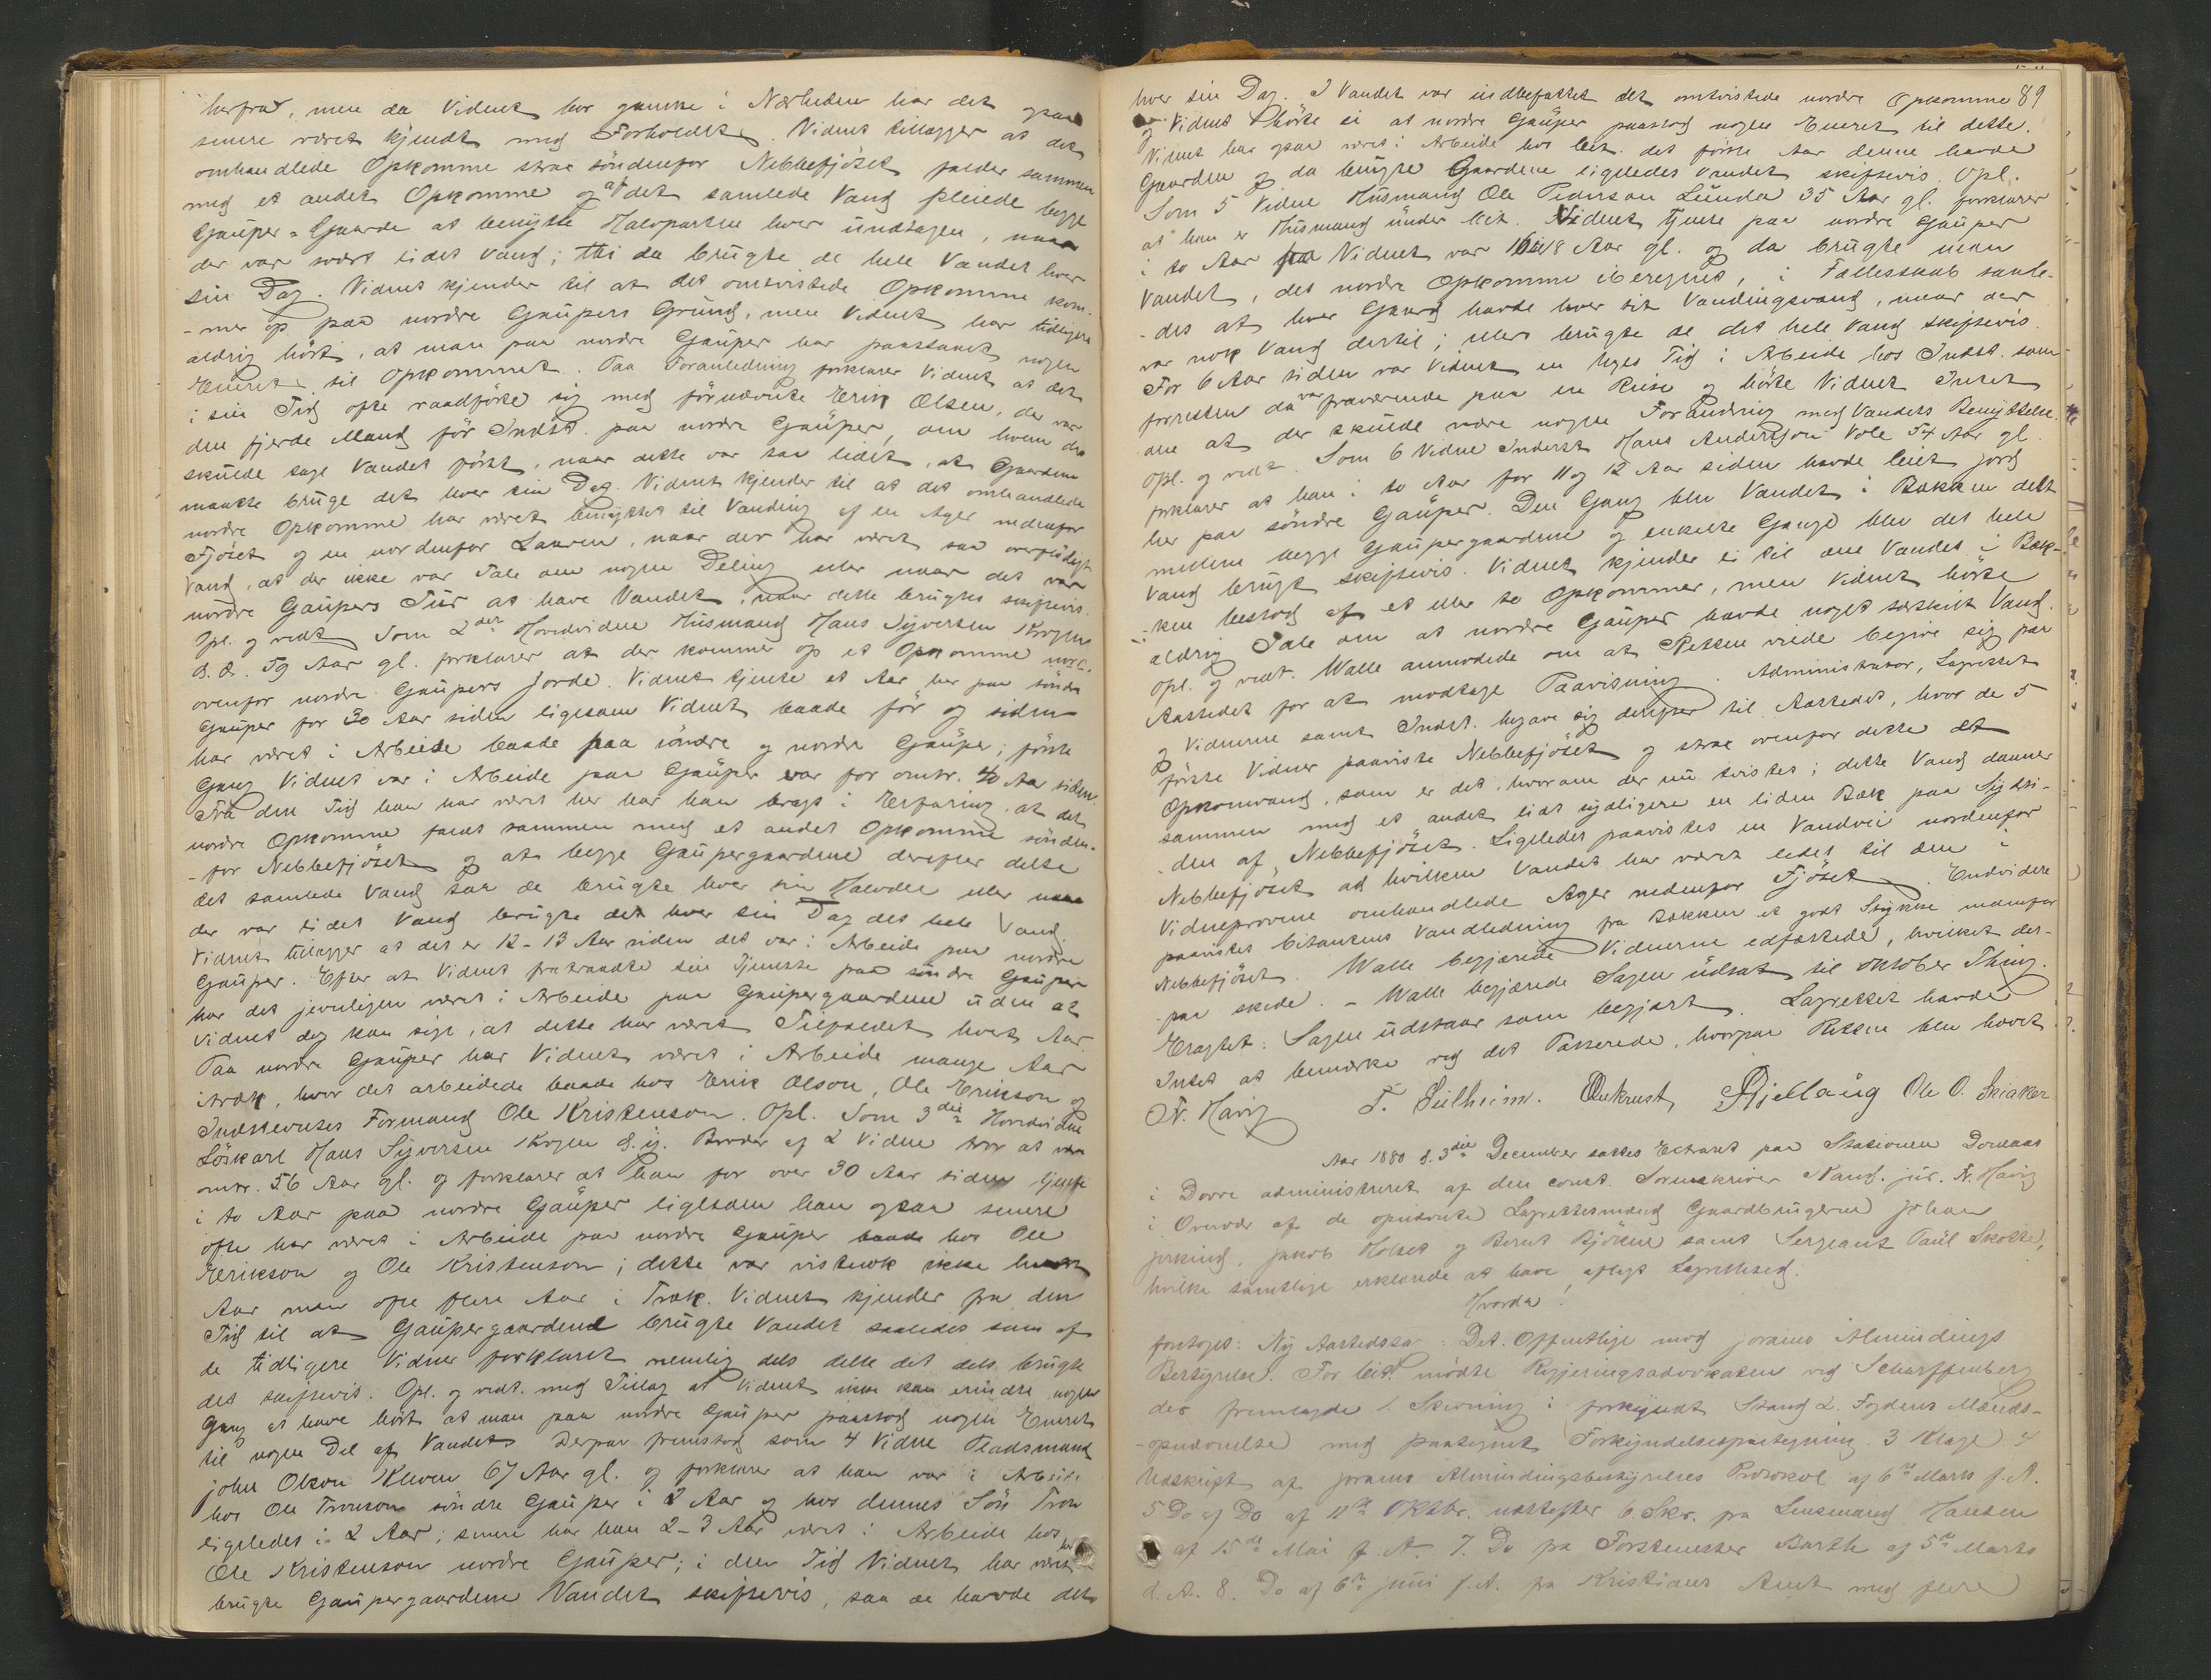 herfra, men da Vidnet bor ganske i Nærheden har det ogsaa
senere været kjendt med Forholdet. Vidnet tillægger at det
omhandlede Opkomme strax söndenfor Nebbefjöset falder sammen
med et andet Opkomme og at det samlede Vand pleiede begge
Gaüper-Gaarde at benytte Halvparten hver undtagen, naar
der var svært lidet Vand; thi da brugte de hele Vandet hver
sin Dag. Vidnet kjender til at det omtvistede Opkomme kom-
-mer op paa nordre Gaüpers Grund, men Vidnet har tidligere
aldrig hört, at man paa nordre Gaüper har paastaaet nogen
Eneret til Opkommet. Paa Foranledning forklarer Vidnet at det
i sin Tid ofte raadförte sig med förnævnte Erik Olsen, der var
den fjerde Mand för Indst. paa nordre Gaüper, om hvem der
skulde tage Vandet först, naar dette var saa lidet, at Gaardene
maatte bruge det hver sin Dag. Vidnet kjender til at det omhandlede
nordre Opkomme har været benyttet til Vanding af en Ager nedenfor
Fjöset og en nordenfor Laaven, naar der har været saa overflödigt
Vand, at der ikke var Tale om nogen Deling eller naar det var
nordre Gaüpers Tur at have Vandet, naar dette brugtes skiftevis.
Opl. og vedt. Som 2den Hovedvidne Husmand Hans Syversen Krogen
d. æ. 59 Aar gl. forklarer at der kommer op et Opkomme
ovenfor nordre Gaüpers Jorde. Vidnet tjente et Aar her paa söndre
Gaüper for 30 Aar siden ligesom Vidnet baade för og siden
har været i Arbeide baade paa söndre og nordre Gaüper; förste
Gang Vidnet var i Arbeide paa Gaüper var for omtr. 40 Aar siden.
Fra den Tid han har været her har han bragt i Erfaring, at det
nordre Opkomme faldt sammen med et andet Opkomme sönden-
-for Nebbefjöset og at begge Gaüpergaardene derefter delte
det samlede Vand saa de brugte hver sin Halvdel eller naar
der var lidet Vand brugte det hver sin Dag det hele Vand.
Vidnet tillægger at det er 12-13 Aar siden det var i Arbeide paa nordre
Gaüper. Efter at Vidnet fratraadte sin Tjeneste paa söndre Gaüper
har det jevnligen været i Arbeide paa Gaüpergaardene uden at
Vidnet dog kan sige, at dette har været Tilfældet hvert Aar.
Paa nordre Gaüper har Vidnet været i Arbeide mange Aar
itræk, hvor det arbeidede baade hos Erik Olson, Ole Erikson og
Indstevntes Formand Ole Kristenson. Opl. Som 3die Hovedvidne
Löskarl Hans Syversen Krogen d. y. Broder af 2 Vidne tror at være
omtr. 56 Aar gl. og forklarer at han for over 30 Aar siden tjente
i to Aar paa nordre Gaüper ligesom han ogsaa senere
ofte har været i Arbeide paa nordre Gaüper baade hos Ole
Erikson og Ole Kristenson; dette var vistnok ikke hvert
Aar men ofte flere Aar i Træk. Vidnet kjender fra den
Tid til at Gaüpergaardene brugte Vandet saaledes som af
de tidligere Vidner forklaret nemlig dels delte det dels brugte
det skiftevis. Opl. og vedt. med Tillæg at Vidnet ikke kan erindre nogen
Gang at have hört at man paa nordre Gaüper paastod nogen Eneret
til nogen Del af Vandet. Derpaa fremstod som 4 Vidne Pladsmand
John Olson Kleven 67 Aar gl. og forklarer at han var i Arbeide
hos Ole Tronson söndre Gaüper i 2 Aar og hos dennes Sön Tron
ligeledes i 2 Aar; senere har han 2-3 Aar været i Arbeide hos
Ole Kristenson nordre Gaüper; i den Tid Vidnet har været her
brugte Gaüpergaardene Vandet skiftevis, saa de havde det
hver sin Dag. I Vandet var indbefattet det omtvistede nordre Opkomme 89
og Vidnet hörte ei at nordre Gaüper paastod nogen Eneret til dette.
Vidnet har ogsaa været i Arbeide hos Cit. det förste Aar denne havde
Gaarden og da brugte Gaardene ligeledes Vandet skiftevis. Opl.
Som 5 Vidne Husmand Ole Pederson Lunda 35 Aar gl. forklarer
at han er Husmand under Cit. Vidnet tjente paa nordre Gaüper
i to Aar Vidnet var 18 Aar gl. og da brugte man
Vandet, det nordre Opkomme iberegnet, i Fællesskab saale-
-des at hver Gaard havde hver sit Vandingsvand, naar der
var nok Vand dertil; ellers brugte de det hele Vand skiftevis.
For 6 Aar siden var Vidnet en liges Tid i Arbeide hos Indst. som
forresten da var fraværende paa en Reise og hörte Vidnet Intet
om at der skulde være nogen Forandring med Vandets Benyttelse.
Opl. og vedt. Som 6 Vidne Inderst Hans Anderson Vole 54 Aar gl.
forklarer at han i to Aar for 11 og 12 Aar siden havde leiet Jord
her paa söndre Gaüper. Den Gang blev Vandet i Bækken delt
mellem begge Gaüpergaardene og enkelte Gange blev det hele
Vand brugt skiftevis. Vidnet kjender ei til om Vandet i Bæk-
-ken bestod af et eller to Opkommer, men Vidnet hörte
aldrig Tale om at nordre Gaüper havde noget særskilt Vand.
Opl. og vedt. Walle anmodede om at Retten vilde begive sig paa
Aastedet for at modtage Paavisning. Administrator, Lagrettet
og Vidnerne samt Indst. begave sig derefter til Aastedet, hvor de 5
förste Vidner paaviste Nebbefjöset og strax ovenfor dette det
Opkomvand, som er det, hvorom der nu tvistes; dette Vand danner
sammen med et andet lidt sydligere en liden Bæk paa Sydsi-
-den af Nebbefjöset. Ligeledes paavistes en Vandvei nordenfor
Nebbefjöset ad hvilken Vandet har været ledet til den i
Vidneprovene omhandlede Ager nedenfor Fjöset. Endvidere
paavistes Citantens Vandledning fra Bækken et godt Stykke nedenfor
Nebbefjöset. Walle begjærede Vidnerne edfæstede, hvilket der-
-paa skede. - Walle begjærede Sagen udsat til Oktober Thing.
Eragtet: Sagen udstaar som begjært. Lagrettet havde
Intet at bemærke ved det Passerede, hvorpaa Retten blev hævet.
N. Havig T. Sülheim. Qvekrust, P Gjellaug Ole O. Skiaker
Aar 1880 d. 3die December sattes Extraret paa Stationen Dombaas
i Dovre administreret af den const. Sorenskriver Kand. jur. N. Havig
i Overvær af de opnævnte Lagrettesmænd Gaardbrugerne Johan
Jerkind, Jakob Holset og Bernt Björkne samt Sergeant Paül Skotte,
hvilke samtlige erklærede at have aflagt Lagretteed.
Hvorda!
foretoges: Ny Aastedssag: Det Offentlige mod Joramo Almindings
Bestyrelse. For Cit. mödte Regjeringsadvokaten ved Scharffenberg
der fremlagde 1. Stevning i forkyndt Stand 2. Fogdens Mænds-
-opnævnelse med paategnet Forkyndelsespaategning. 3 Klage 4
Udskrift af Joramo Almindingsbestyrelses Protokol af 6te Marts f. A.
5 Do af Do af 11te Oktbr. næstefter 6 Skr. fra Lensmand Hansen
af 15de Mai f. A. 7. Do fra Forstmester Barth af 5te Marts
d. A. 8. Do af 6te Juni f. A. fra Kristians Amt med flere